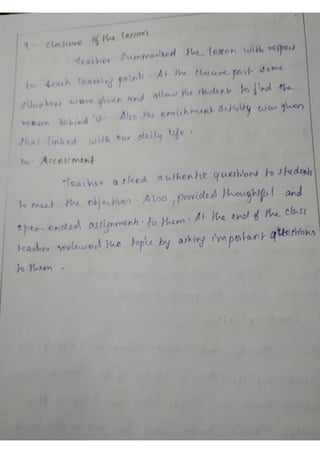 9. Closure of the lesson
Teacher Summarized the lesson with respect
to teach learning points. At the closure part some
situations were given and allow the students to find the
reason behind it. Also the enrichment activity was given
that linked with our daily life.
10. Assessment
Teacher asked authentic questions to students
to meet the objectives. Also, provided thoughtful and
open-ended assignment to them. At the end of the class
teacher reviewed the topic by asking important questions
to them.